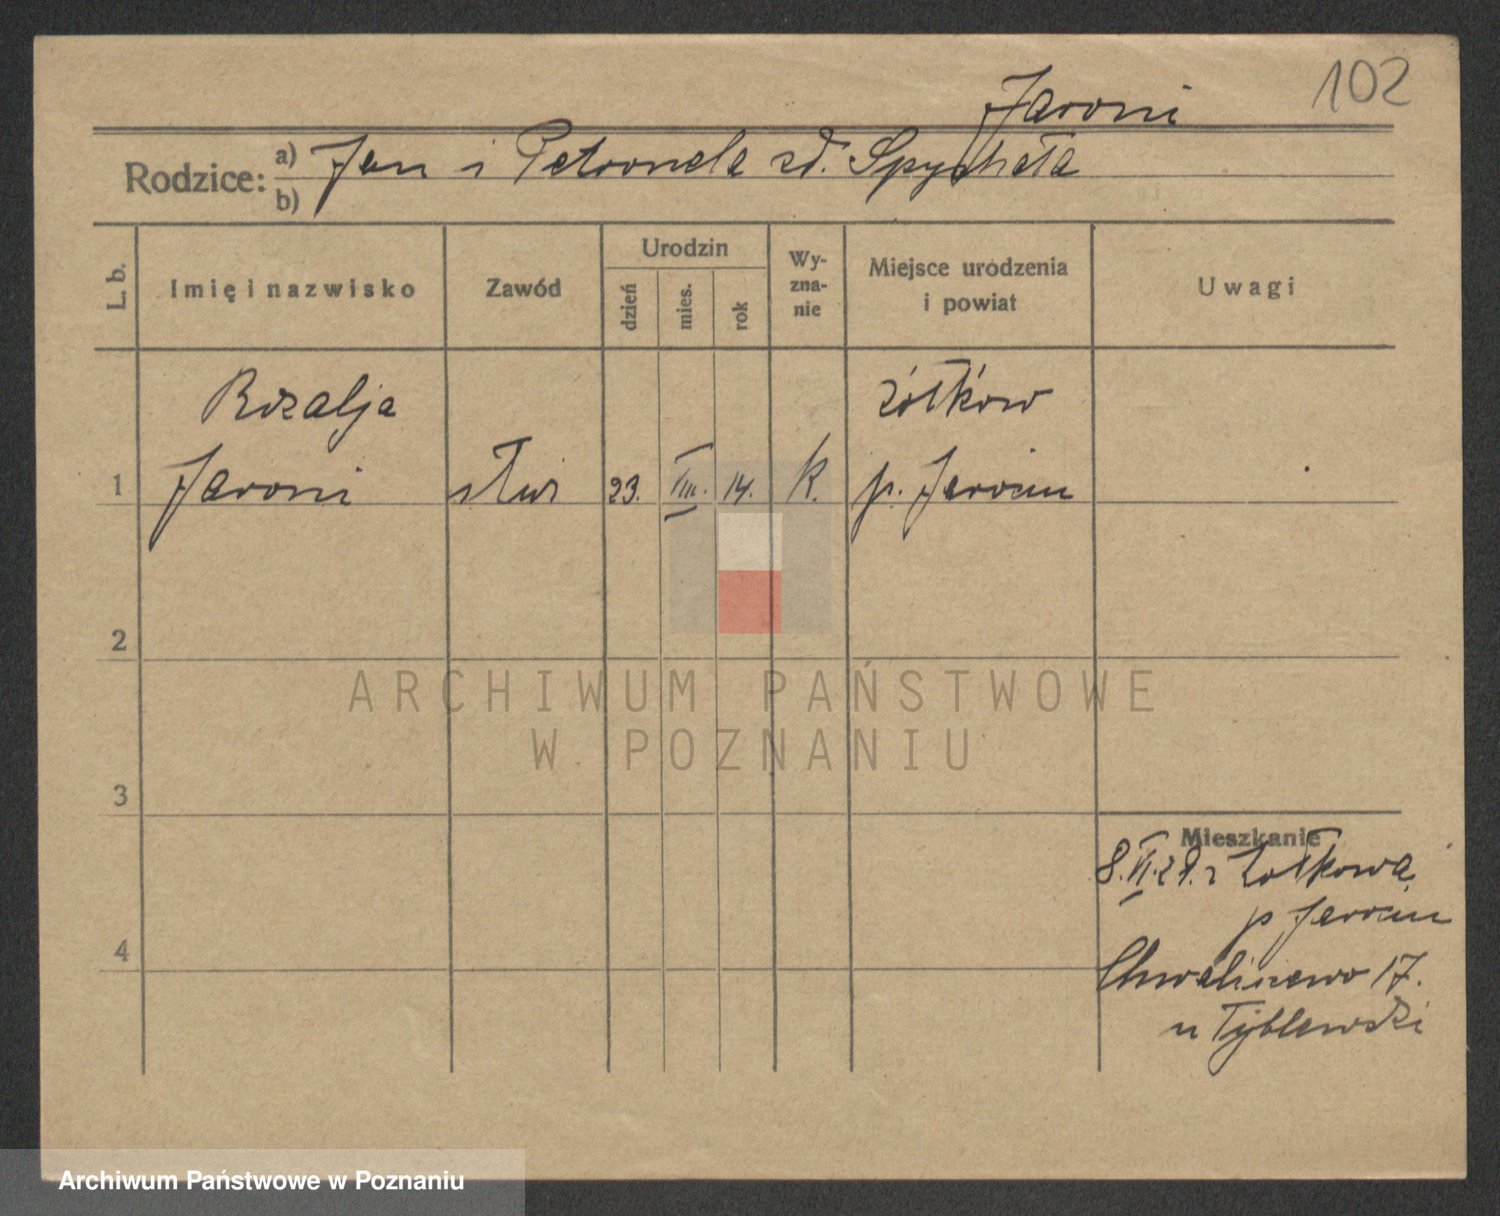 102
Jaroni
Rodzice: a) Jan i Petronela zd. Spychała
b)
L. b. Imię i nazwisko Zawód Urodzin dzień mies. rok Wy-zna-nie Miejsce urodzenia i powiat Uwagi
Rozalja żółków
1 Jaroni służ 23. VIII. 14. k. p. Jarocin
2
3
4
Mieszkanie
8.VI.29. z Żołkowa
p Jarocin
Chwaliszewo 17.
u Tyblewski
ARCHIWUM PAŃSTWOWE
W POZNANIU
Archiwum Państwowe w Poznaniu